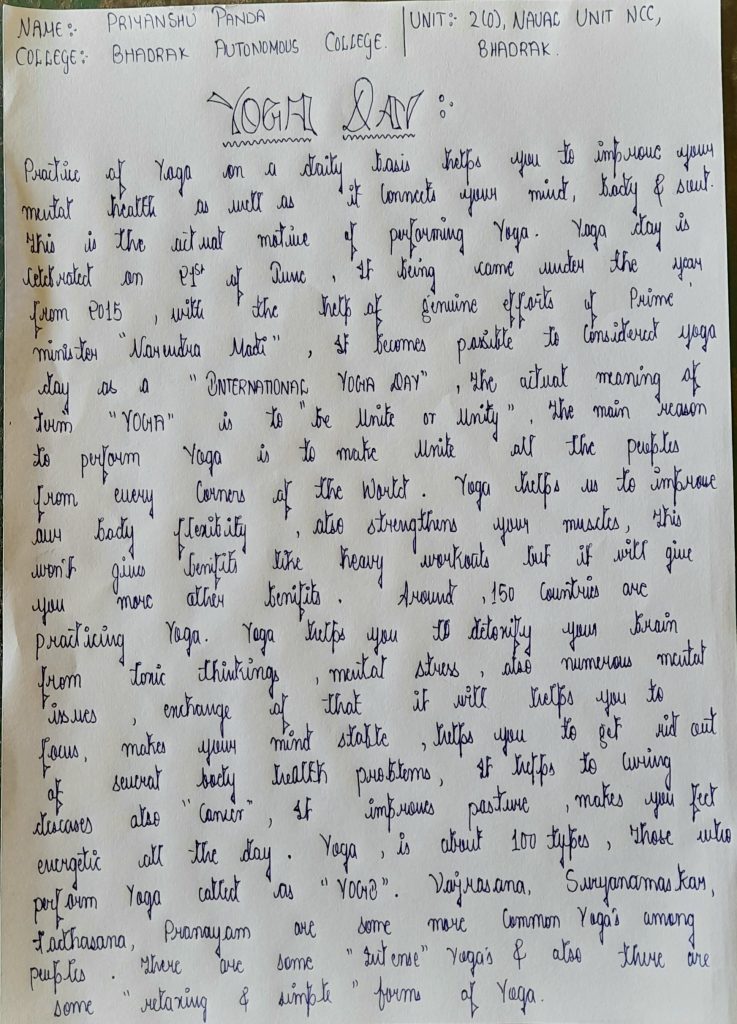 NAME:- PRIYANSHU PANDA
COLLEGE:- BHADRAK AUTONOMOUS COLLEGE.
UNIT:- 2(O), NAVAL UNIT NCC,
BHADRAK.
YOGA DAY :-
Practice of Yoga on a daily basis helps you to improve your
mental health as well as it connects your mind, body & soul.
This is the actual motive of performing Yoga. Yoga day is
celebrated on 21st of June, It being came under the year
from 2015, with the help of genuine efforts of Prime
minister "Narendra Modi", It becomes possible to considered yoga
day as a "INTERNATIONAL YOGA DAY", the actual meaning of
term "YOGA" is to "be Unite or Unity", The main reason
to perform Yoga is to make Unite all the peoples
from every Corners of the World. Yoga helps us to improve
our body flexibility, also strengthens your muscles, This
won't gives benifits like heavy workouts but it will give
you more other benifits. Around, 150 Countries are
practicing Yoga. Yoga helps you to detoxify your brain
from toxic thinkings, mental stress, also numerous mental
issues, exchange of that it will helps you to
focus, makes your mind stable, helps you to get rid out
of several body health problems, It helps to Curing
diseases also "Cancer", It improves posture, makes you feel
energetic all the day. Yoga, is about 100 types, Those who
perform Yoga called as "YOGI". Vajrasana, Suryanamaskar,
Tadhasana, Pranayam are some more Common Yoga's among
peoples. There are some "Intense" Yoga's & also there are
some "relaxing & simple" forms of Yoga.